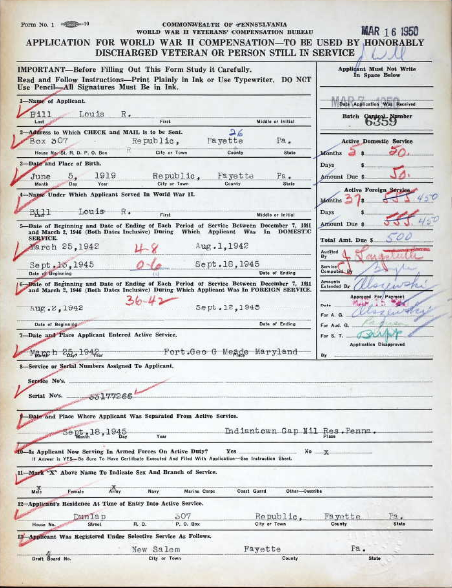 Form No. 1
COMMONWEALTH OF PENNSYLVANIA
WORLD WAR II VETERANS' COMPENSATION BUREAU
MAR 16 1950
APPLICATION FOR WORLD WAR II COMPENSATION—TO BE USED BY HONORABLY
DISCHARGED VETERAN OR PERSON STILL IN SERVICE
IMPORTANT—Before Filling Out This Form Study it Carefully.
Read and Follow Instructions—Print Plainly in Ink or Use Typewriter, DO NOT
Use Pencil—All Signatures Must be in Ink.
Applicant Must Not Write
In Space Below
1—Name of Applicant.
Bill Louis R.
Last First Middle or Initial
Date Application Was Received
Batch Control Number
6359
2—Address to Which CHECK and MAIL is to be Sent.
26
Box 307 Republic, Fayette Pa.
House No. St. R. D. P. O. Box City or Town County State
Active Domestic Service
Months 5 $ 50.
Days $
Amount Due $ 50.
3—Date and Place of Birth.
June 5, 1919 Republic, Fayette Pa.
Month Day Year City or Town County State
4—Name Under Which Applicant Served In World War II.
Bill Louis R.
Last First Middle or Initial
Active Foreign Service
Months 37 $ 555 450
Days $
Amount Due $ 555 450
Total Amt. Due $ 500
5—Date of Beginning and Date of Ending of Each Period of Service Between December 7, 1941
and March 2, 1946 (Both Dates Inclusive) During Which Applicant Was In DOMESTIC
SERVICE.
March 25,1942 4-8 Aug.1,1942
Sept.13,1945 0-6 Sept.18,1945
Date of Beginning Date of Ending
Audited
By
Computed By
Amounts
Extended By
6—Date of Beginning and Date of Ending of Each Period of Service Between December 7, 1941
and March 2, 1946 (Both Dates Inclusive) During Which Applicant Was In FOREIGN SERVICE.
36-42
Aug.2,1942 Sept.12,1945
Date of Beginning Date of Ending
Approved For Payment
Date
For A. G.
For Aud. G.
For S. T.
Application Disapproved
By
7—Date and Place Applicant Entered Active Service.
March 25,1942 Fort.Geo G Meade Maryland
Month Day Year Place
8—Service or Serial Numbers Assigned To Applicant.
Service No's.
Serial No's. 33177266
9—Date and Place Where Applicant Was Separated From Active Service.
Sept.18,1945 Indiantown Gap Mil Res.Penna.
Month Day Year Place
10—Is Applicant Now Serving In Armed Forces On Active Duty? Yes No X
If Answer is YES—Be Sure To Have Certificate Executed And Filed With Application—See Instruction Sheet.
11—Mark "X" Above Name To Indicate Sex And Branch of Service.
Male Female Army Navy Marine Corps Coast Guard Other—Describe
12—Applicant's Residence At Time of Entry Into Active Service.
Dunlap 307 Republic, Fayette Pa.
House No. Street R. D. P. O. Box City or Town County State
13—Applicant Was Registered Under Selective Service As Follows.
New Salem Fayette Pa.
Draft Board No. City or Town County State